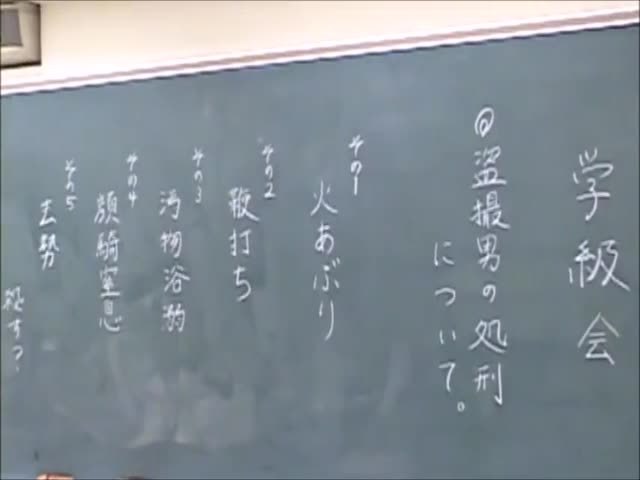 学級会
◎盗撮男の処刑
について。
その1
火あぶり
その2
鞭打ち
その3
汚物浴
その4
顔騎窒息
その5
去勢
殺す?